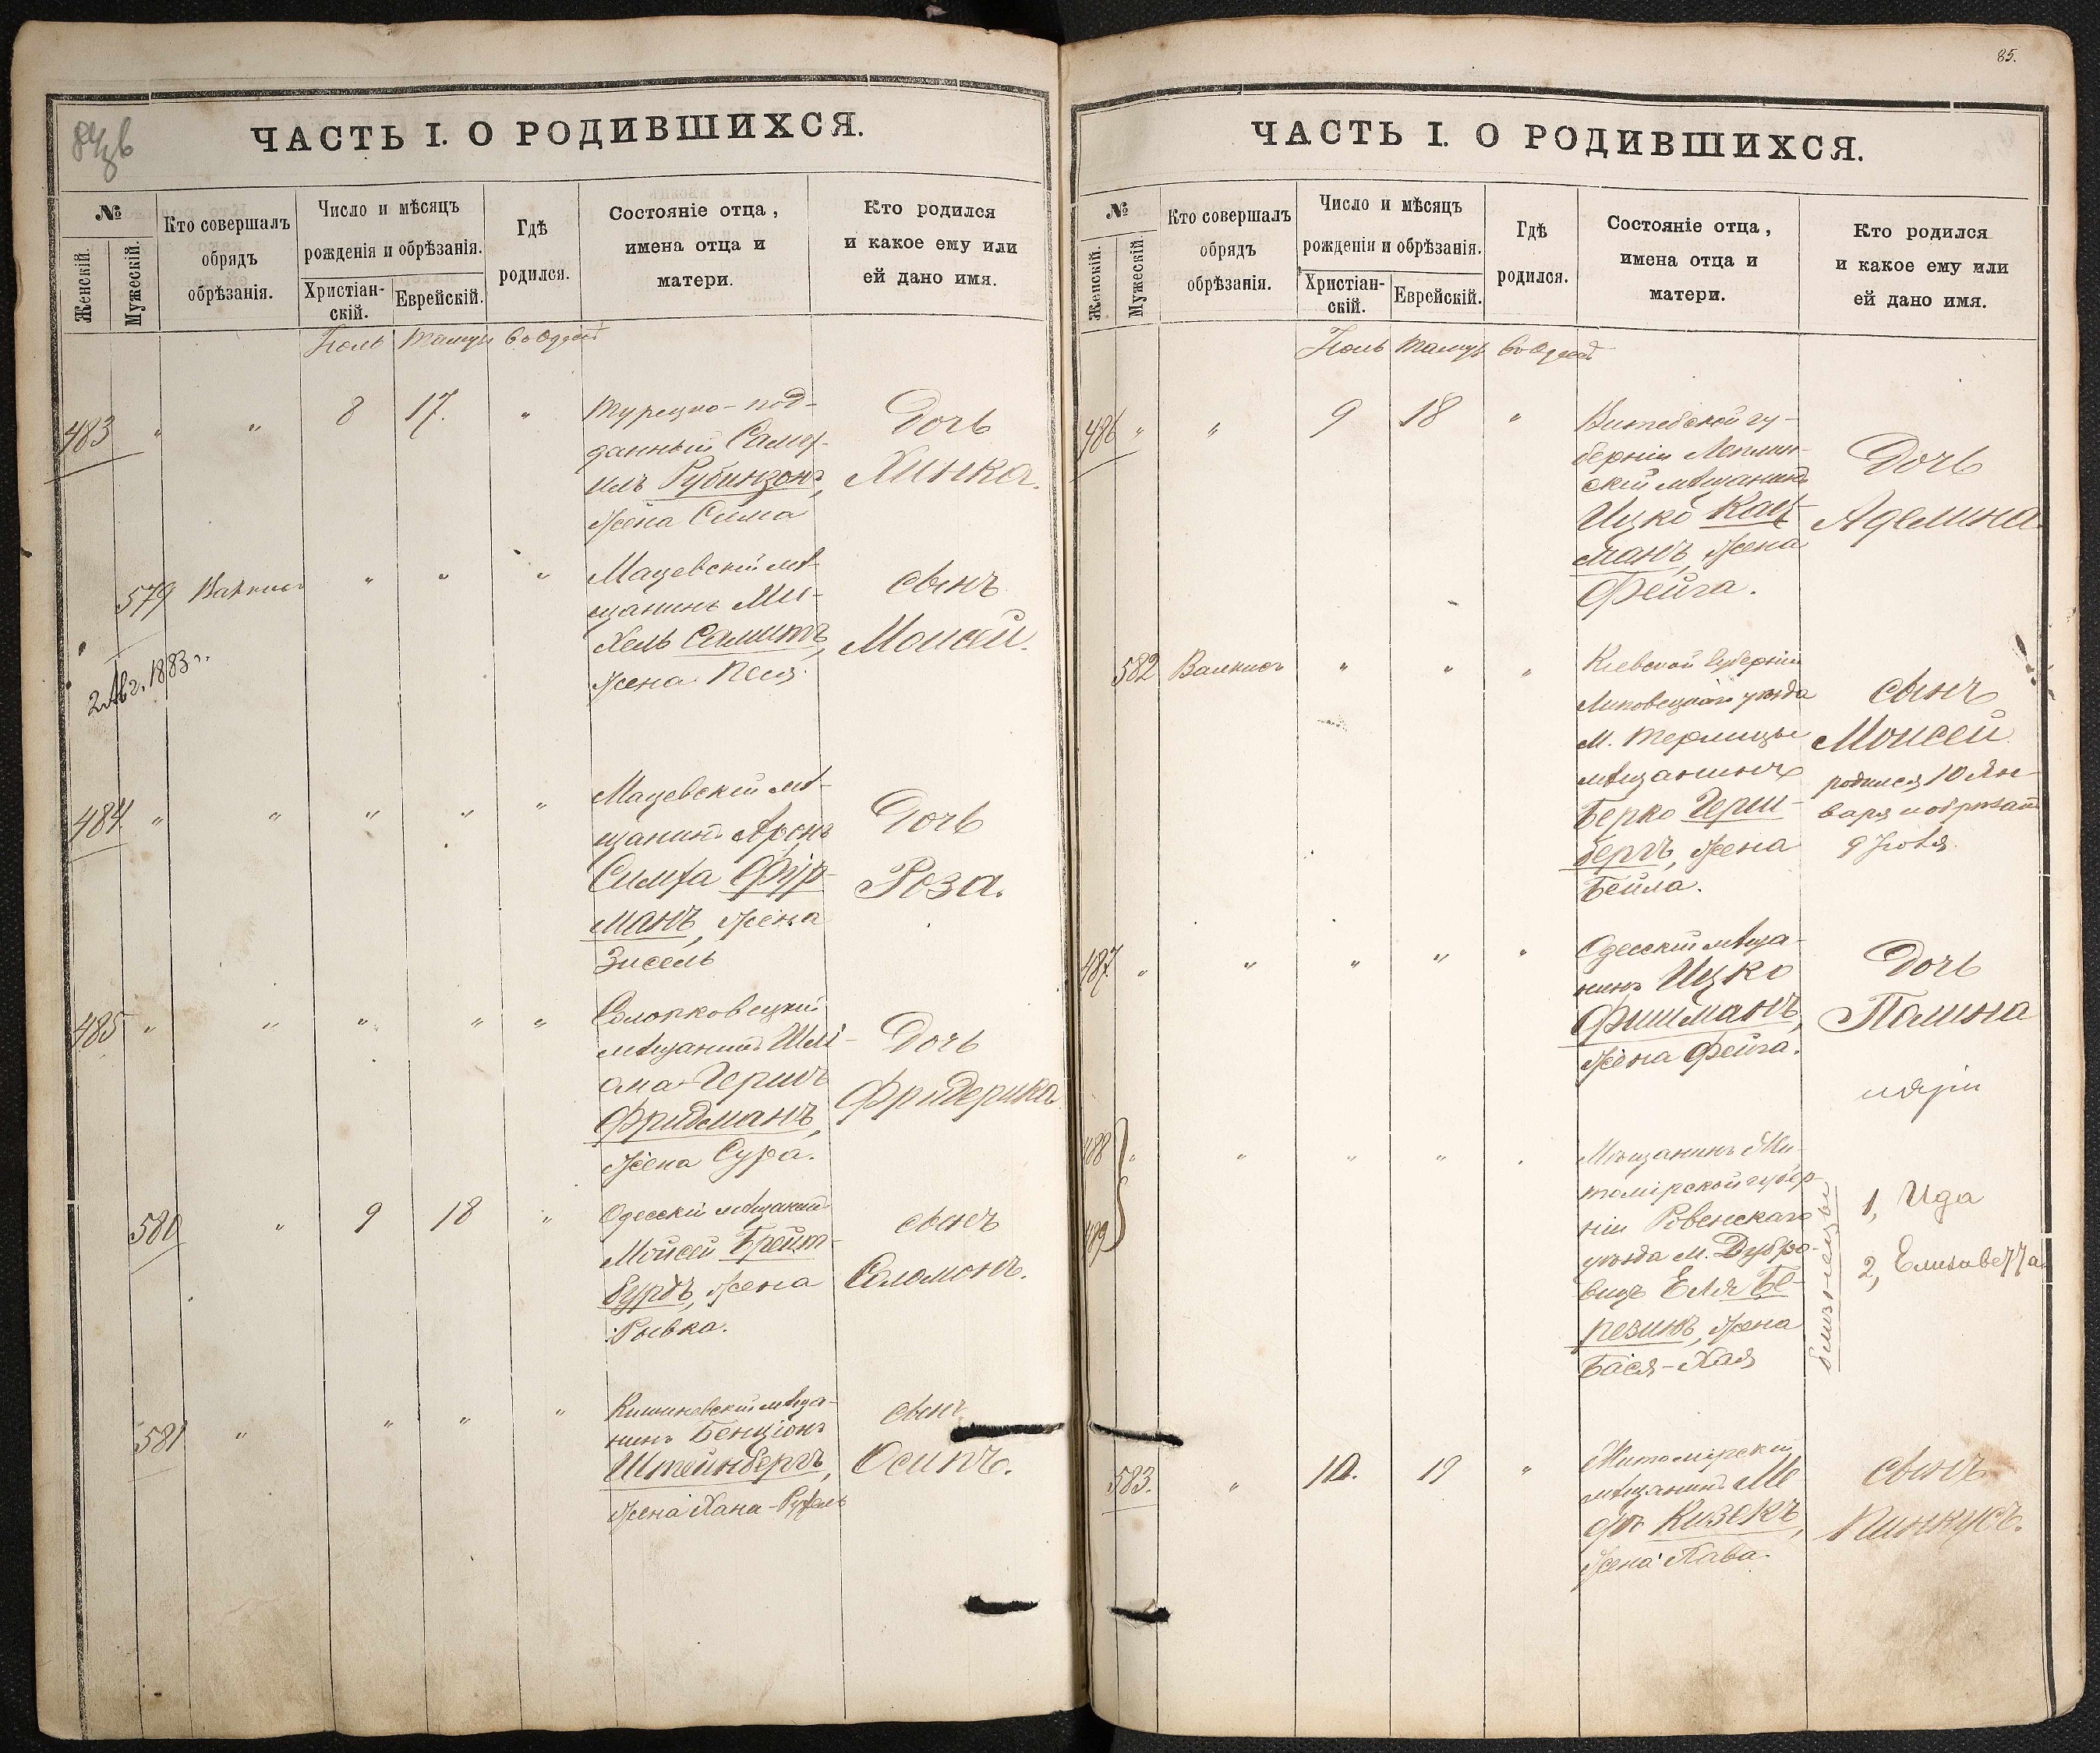 ЧАСТЬ I. О РОДИВШИХСЯ.
№
Женскій.
Мужескій.
Кто совершалъ
обрядъ
обрѣзанія.
Число и мѣсяцъ
рожденія и обрѣзанія.
Христіан-
скій.
Еврейскій.
Гдѣ
родился.
Состояніе отца,
имена отца и
матери.
Кто родился
и какое ему или
ей дано имя.
Іюль Тамузъ
483 " " 8 17. "
Турецко-под-
данный
Рубинзонъ,
жена Сима
Дочь
Хинка.
579 " " "
Мацевскій мѣ-
щанинъ Ми-
хель
жена Песя.
сынъ
Моисей.
2 Авг. 1883 г.
484 " " " " "
Мацевскій мѣ-
щанинъ Аронъ
Симха Фур-
манъ, жена
Зисель
Дочь
Роза.
485 " " " " "
мѣщанинъ
Гершъ
Фридманъ,
жена Сура.
Дочь
Фридерика
580 " 9 18 "
Одесскій мѣщанинъ
Мойсей Брейт-
бурдъ, жена
Рывка.
сынъ
Соломонъ.
581 " " " "
Кишиневскій мѣща-
нинъ Бенціонъ
Штейнбергъ,
жена Хана-Рухель
сынъ
Осипъ.
85.
ЧАСТЬ I. О РОДИВШИХСЯ.
№
Женскій.
Мужескій.
Кто совершалъ
обрядъ
обрѣзанія.
Число и мѣсяцъ
рожденія и обрѣзанія.
Христіан-
скій.
Еврейскій.
Гдѣ
родился.
Состояніе отца,
имена отца и
матери.
Кто родился
и какое ему или
ей дано имя.
Іюль Тамузъ
486 " " 9 18 "
Витебской гу-
берніи
мѣщанинъ
Ицко Кац-
манъ, жена
Фейга.
Дочь
Аделина
582 " " "
Кіевской губерніи
Липовецкаго уѣзда
м.
мѣщанинъ
Берко Герш-
бергъ, жена
Бейла.
сынъ
Моисей
родился 10 Ян-
варя и обрѣзанъ
9 Іюля.
487. " " " " "
Одесскій мѣща-
нинъ Ицко
Фишманъ,
жена Фейга.
Дочь
Полина
488 " " " " .
489
Мѣщанинъ Жи-
томірской губер-
ніи Ровенскаго
уѣзда м. Дубро-
вицъ Еля Бе-
резинъ, жена
Бася-Хая
близнецы
1, Ида
2, Елизаветта
583. " 10. 19 "
Житомірскій
мѣщанинъ
Кизекъ,
жена
сынъ
Пинкусъ.